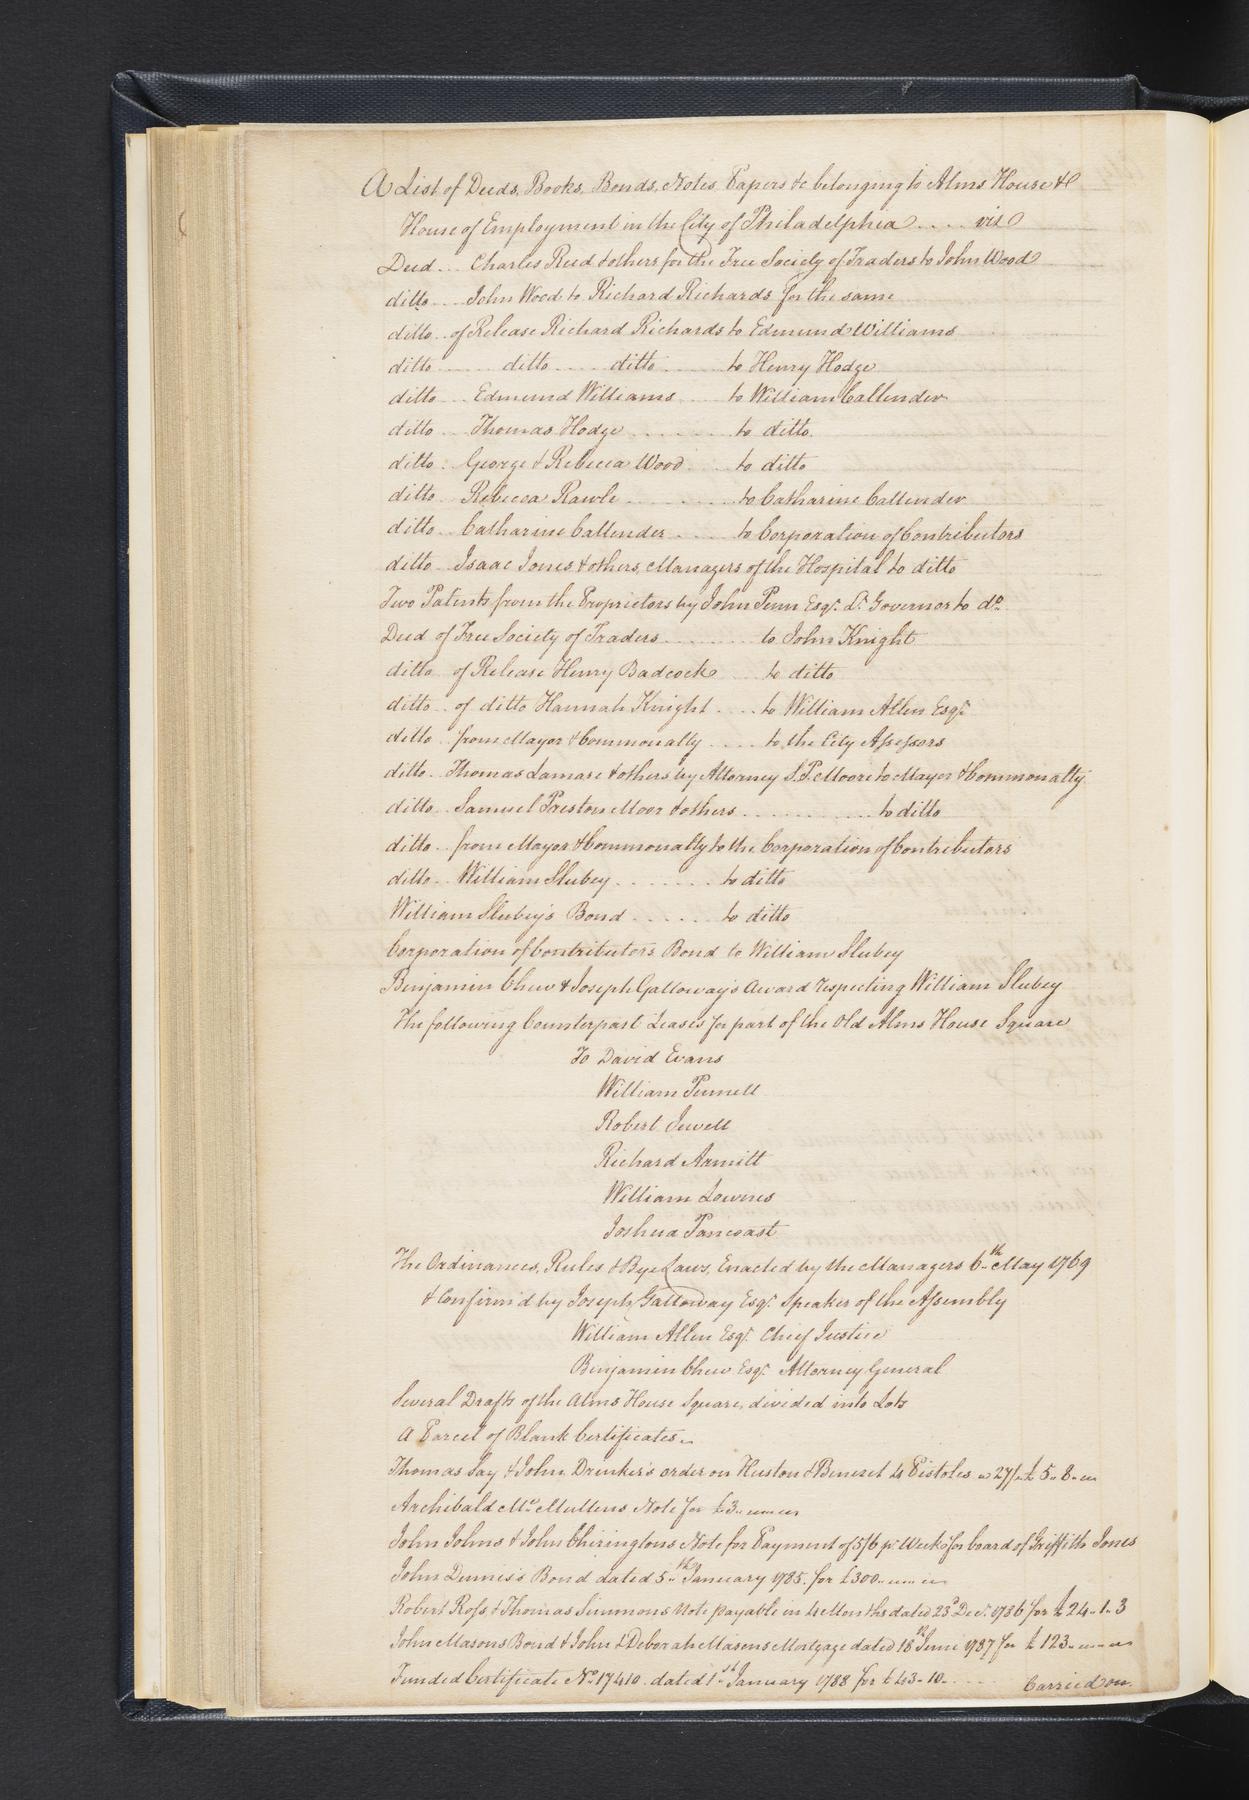 A List of Deeds, Books, Bonds, Notes, Papers &c belonging to Alms House &
House of Employment in the City of Philadelphia .... viz
Deed... Charles Reed & others for the Free Society of Traders to John Wood
ditto.... John Wood to Richard Richards for the same
ditto.. of Release Richard Richards to Edmund Williams
ditto ...... ditto ..... ditto ...... to Henry Hodge
ditto.... Edmund Williams .... to William Callender
ditto.... Thomas Hodge ........ to ditto
ditto.. George & Rebecca Wood .... to ditto
ditto... Rebecca Rawle ......... to Catharine Callender
ditto... Catharine Callender .... to Corporation of Contributors
ditto.. Isaac Jones & others, Managers of the Hospital to ditto
Two Patents from the Proprietors by John Penn Esqr. Lt. Governor to do.
Deed of Free Society of Traders ......... to John Knight
ditto of Release Henry Badcock .... to ditto
ditto.. of ditto Hannah Knight .... to William Allen Esqr.
ditto.. from Mayor & Commonalty .... to the City Assessors
ditto.. Thomas Lamare & others by Attorney S. P. Moore to Mayor & Commonalty
ditto.. Samuel Preston Moor & others ............. to ditto
ditto.. from Mayor & Commonalty to the Corporation of Contributors
ditto.. William Slubey ....... to ditto
William Slubey's Bond ...... to ditto
Corporation of Contributors Bond to William Slubey
Benjamin Chew & Joseph Galloway's Award respecting William Slubey
The following Counterpart Leases for part of the Old Alms House Square
To David Evans
William Pennell
Robert Jewell
Richard Armitt
William Lownes
Joshua Pancoast
The Ordinances, Rules & Bye Laws, Enacted by the Managers 6th May 1769
& Confirm'd by Joseph Galloway Esqr. Speaker of the Assembly
William Allen Esqr. Chief Justice
Benjamin Chew Esqr. Attorney General
Several Drafts of the Alms House Square, divided into Lots
A Parcel of Blank Certificates
Thomas Say & John Drinker's order on Huston & Benezet 4 Pistoles 27/ £5..8..
Archibald Mc.Mullens Note for £3..
John Johns & John Chiringtons Note for Payment of 5/6 pr. Week for board of Griffith Jones
John Dennis's Bond dated 5th January 1785. for £300..
Robert Ross & Thomas Simmons Note payable in 4 Months dated 23d Decr. 1786 for £24..1..3
John Masons Bond & John & Deborah Masons Mortgage dated 18th June 1787 for £123..
Funded Certificate No. 17410. dated 1st January 1788 for £43..10.. ....
Carried on